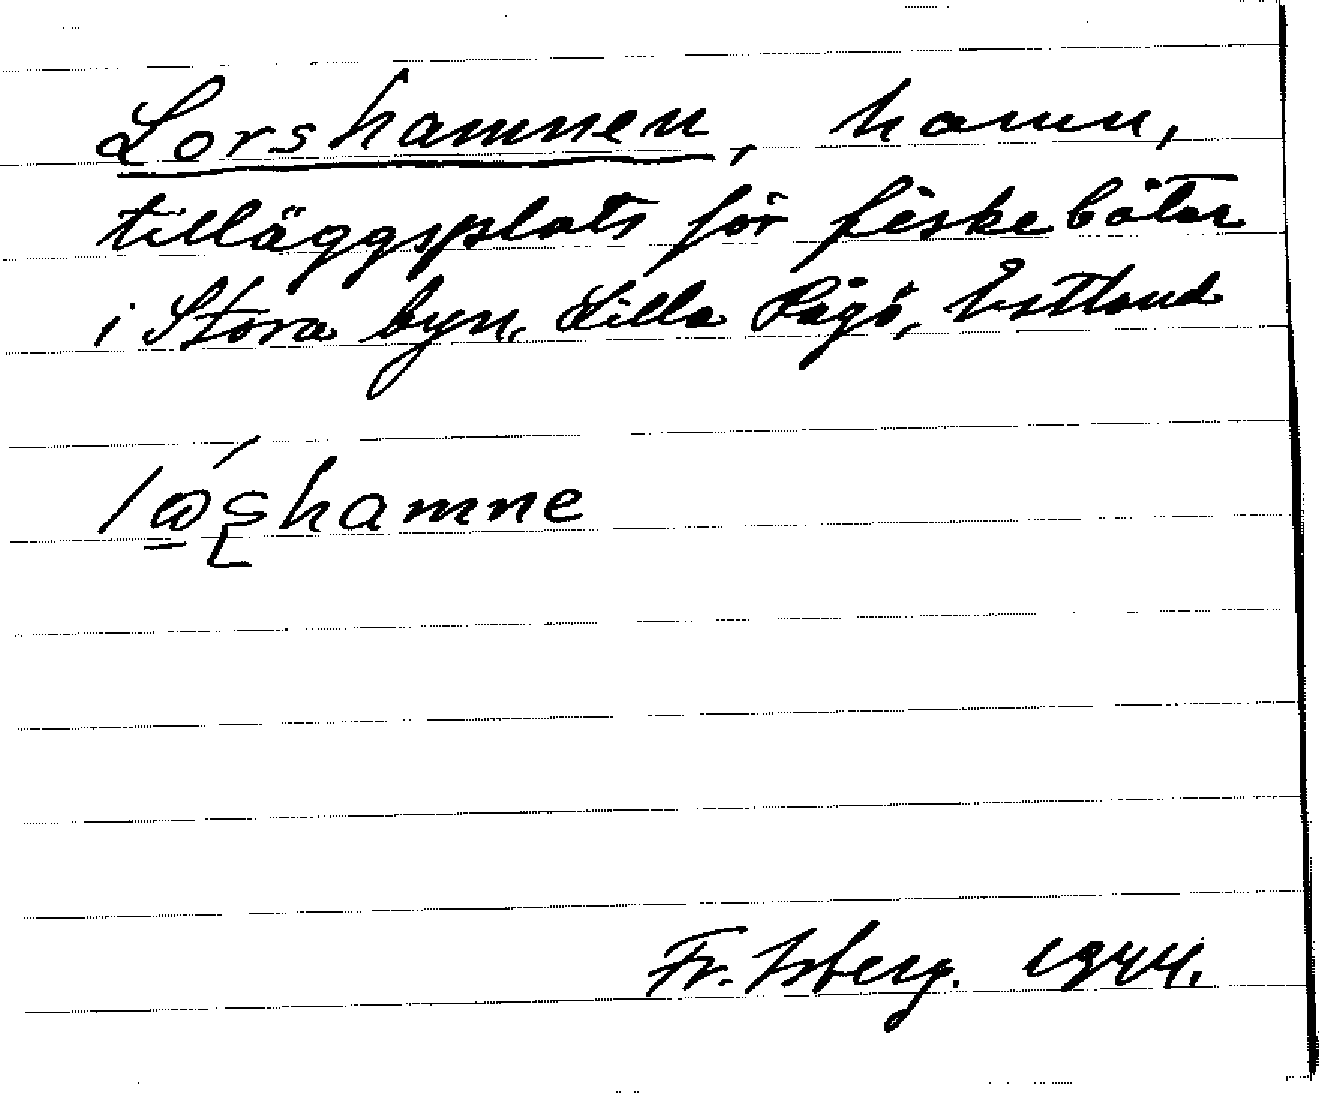 Lorshamnen, hamn,
tilläggsplats för fiskebåtar
i Stora byn, Lilla Rågö, Estland
Fr. Isberg. 1944.